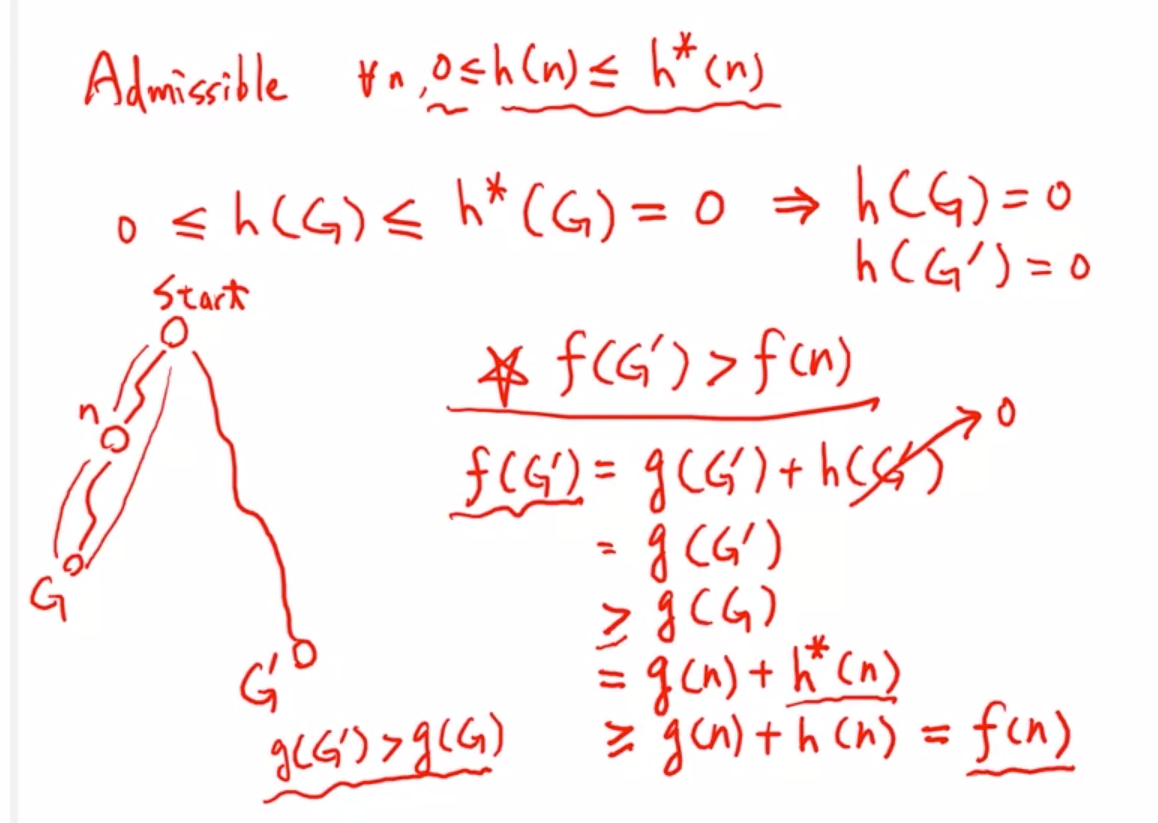 Admissible ∀n, 0≤h(n)≤ h*(n)
0 ≤ h(G) ≤ h*(G) = 0 ⇒ h(G) = 0
h(G') = 0
Start
n
G
G'
g(G') > g(G)
☆ f(G') > f(n)
f(G') = g(G') + h(G') → 0
= g(G')
≥ g(G)
= g(n) + h*(n)
≥ g(n) + h(n) = f(n)